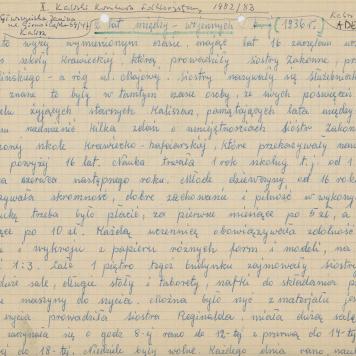 I. Kaliski Konkurs Folklorystyczny 1982/83
lat między-wojennych (1936 r.)
Kalisz
to wyżej wymienionym czasie mając lat 16 zaczęłam
szkoły Krawieckiej, którą prowadziły siostry zakonne, prz
ińskiego - a róg ul. Majowej. Siostry nazywały się służebnicz
znane to były w tamtym czasie osoby, ze swych poświęceń
elu żyjących starych Kaliszan, pamiętających lata między
nadmienić kilka zdań o umiejętnościach sióstr zakon
szkole Krawiecko-hafciarskiej, które przekazywały nau
powyżej 16 lat. Nauka trwała 1 rok szkolny t.j. od 1
czerwca następnego roku. Młode dziewczyny od 16 rok
skromność, dobre zachowanie i pilność w wykony
trzeba było płacić, za pierwsze miesiące po 5 zł, a
po 10 zł. Każdą uczennicę obowiązywała zdolność
i wykroju z papieru różnych form i modeli, na
1:3. Całe 1 piętro tego budynku zajmowały siostry
duże sale, długie stoły i taborety, szafki do składania p
maszyny do szycia. Można było szyć z materiału
szycia prowadziła siostra Reginalda, miała dużą salę
się o godz 8-ej rano do 12-tej z przerwą do 14-tej
do 18-tej. Niedziele były wolne. Każdego dnia rano nau